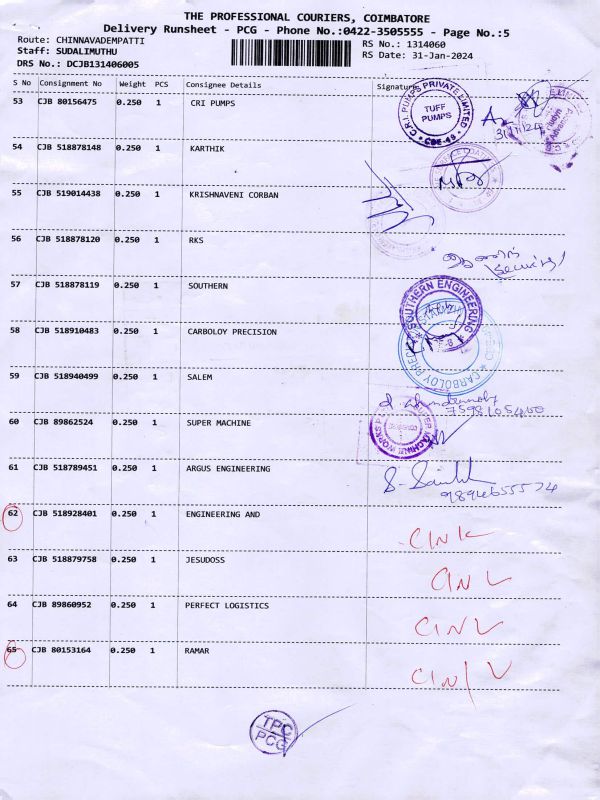 THE PROFESSIONAL COURIERS, COIMBATORE
Delivery Runsheet - PCG - Phone No.:0422-3505555 - Page No.:5
Route: CHINNAVADEMPATTI
Staff: SUDALIMUTHU
DRS No.: DCJB131406005
RS No.: 1314060
RS Date: 31-Jan-2024
S No Consignment No Weight PCS Consignee Details Signature
53 CJB 80156475 0.250 1 CRI PUMPS
C.R.I. PUMPS PRIVATE LIMITED
TUFF
PUMPS
CBE-49
54 CJB 518878148 0.250 1 KARTHIK
55 CJB 519014438 0.250 1 KRISHNAVENI CORBAN
56 CJB 518878120 0.250 1 RKS
57 CJB 518878119 0.250 1 SOUTHERN
SOUTHERN ENGINEERING
58 CJB 518910483 0.250 1 CARBOLOY PRECISION
CARBOLOY PREC
59 CJB 518940499 0.250 1 SALEM
60 CJB 89862524 0.250 1 SUPER MACHINE
SUPER MACHINE WORKS
61 CJB 518789451 0.250 1 ARGUS ENGINEERING
62 CJB 518928401 0.250 1 ENGINEERING AND
63 CJB 518879758 0.250 1 JESUDOSS
64 CJB 89860952 0.250 1 PERFECT LOGISTICS
65 CJB 80153164 0.250 1 RAMAR
TPC
PCG